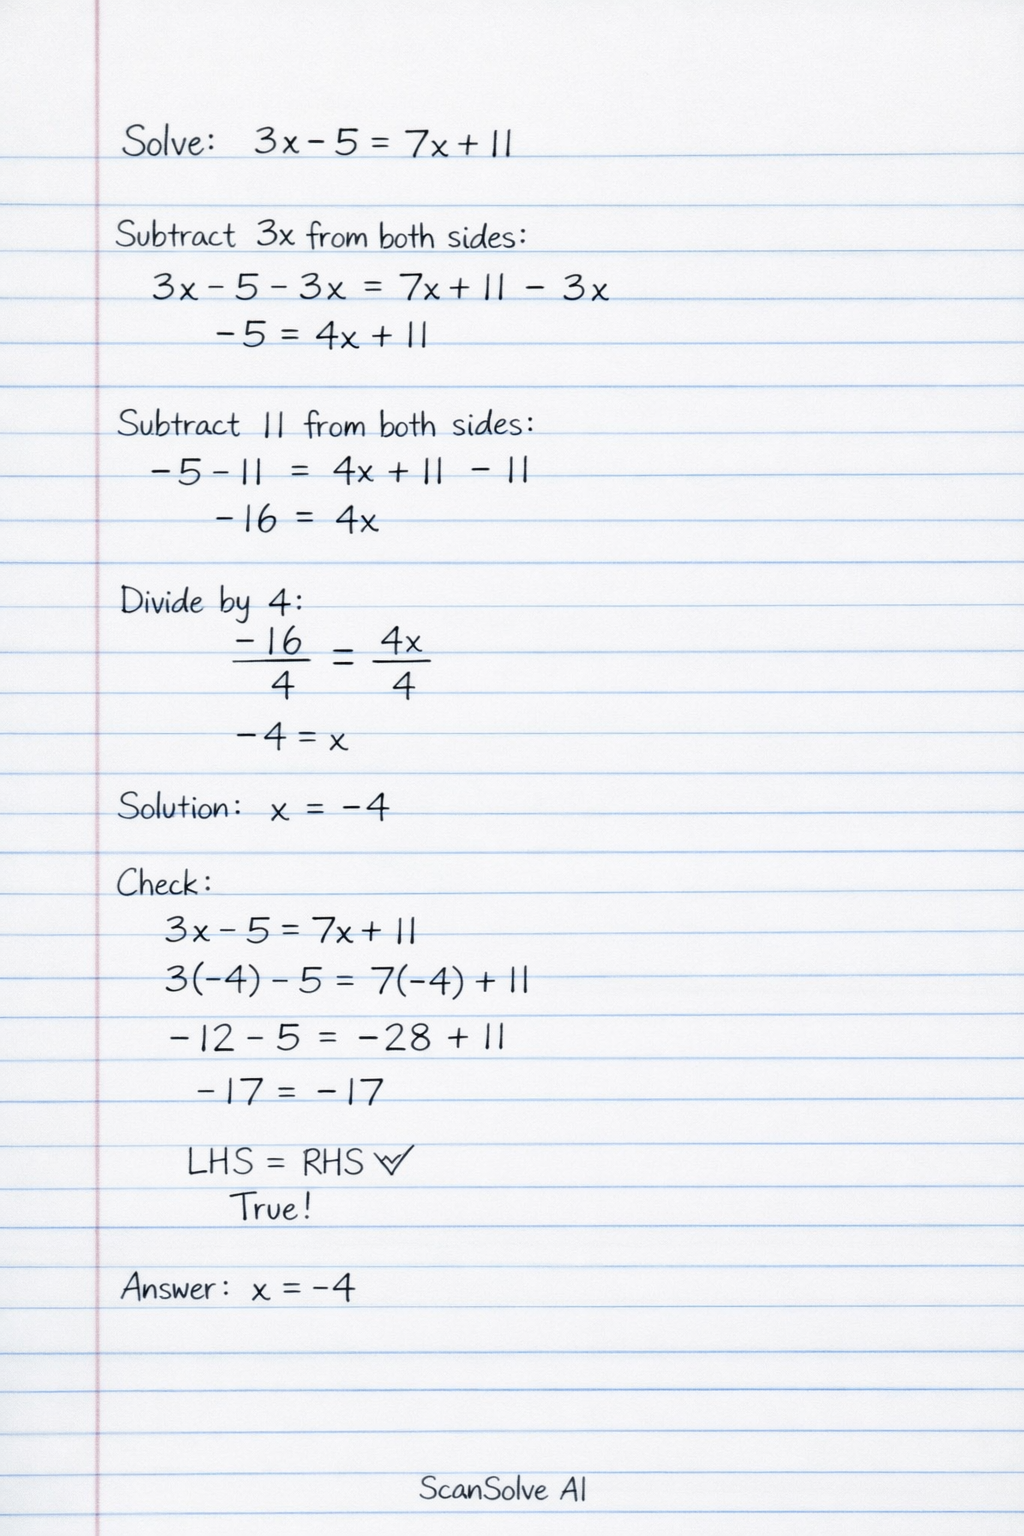 Solve: 3x - 5 = 7x + 11
Subtract 3x from both sides:
3x - 5 - 3x = 7x + 11 - 3x
-5 = 4x + 11
Subtract 11 from both sides:
-5 - 11 = 4x + 11 - 11
-16 = 4x
Divide by 4:
-16/4 = 4x/4
-4 = x
Solution: x = -4
Check:
3x - 5 = 7x + 11
3(-4) - 5 = 7(-4) + 11
-12 - 5 = -28 + 11
-17 = -17
LHS = RHS ✓
True!
Answer: x = -4
ScanSolve AI